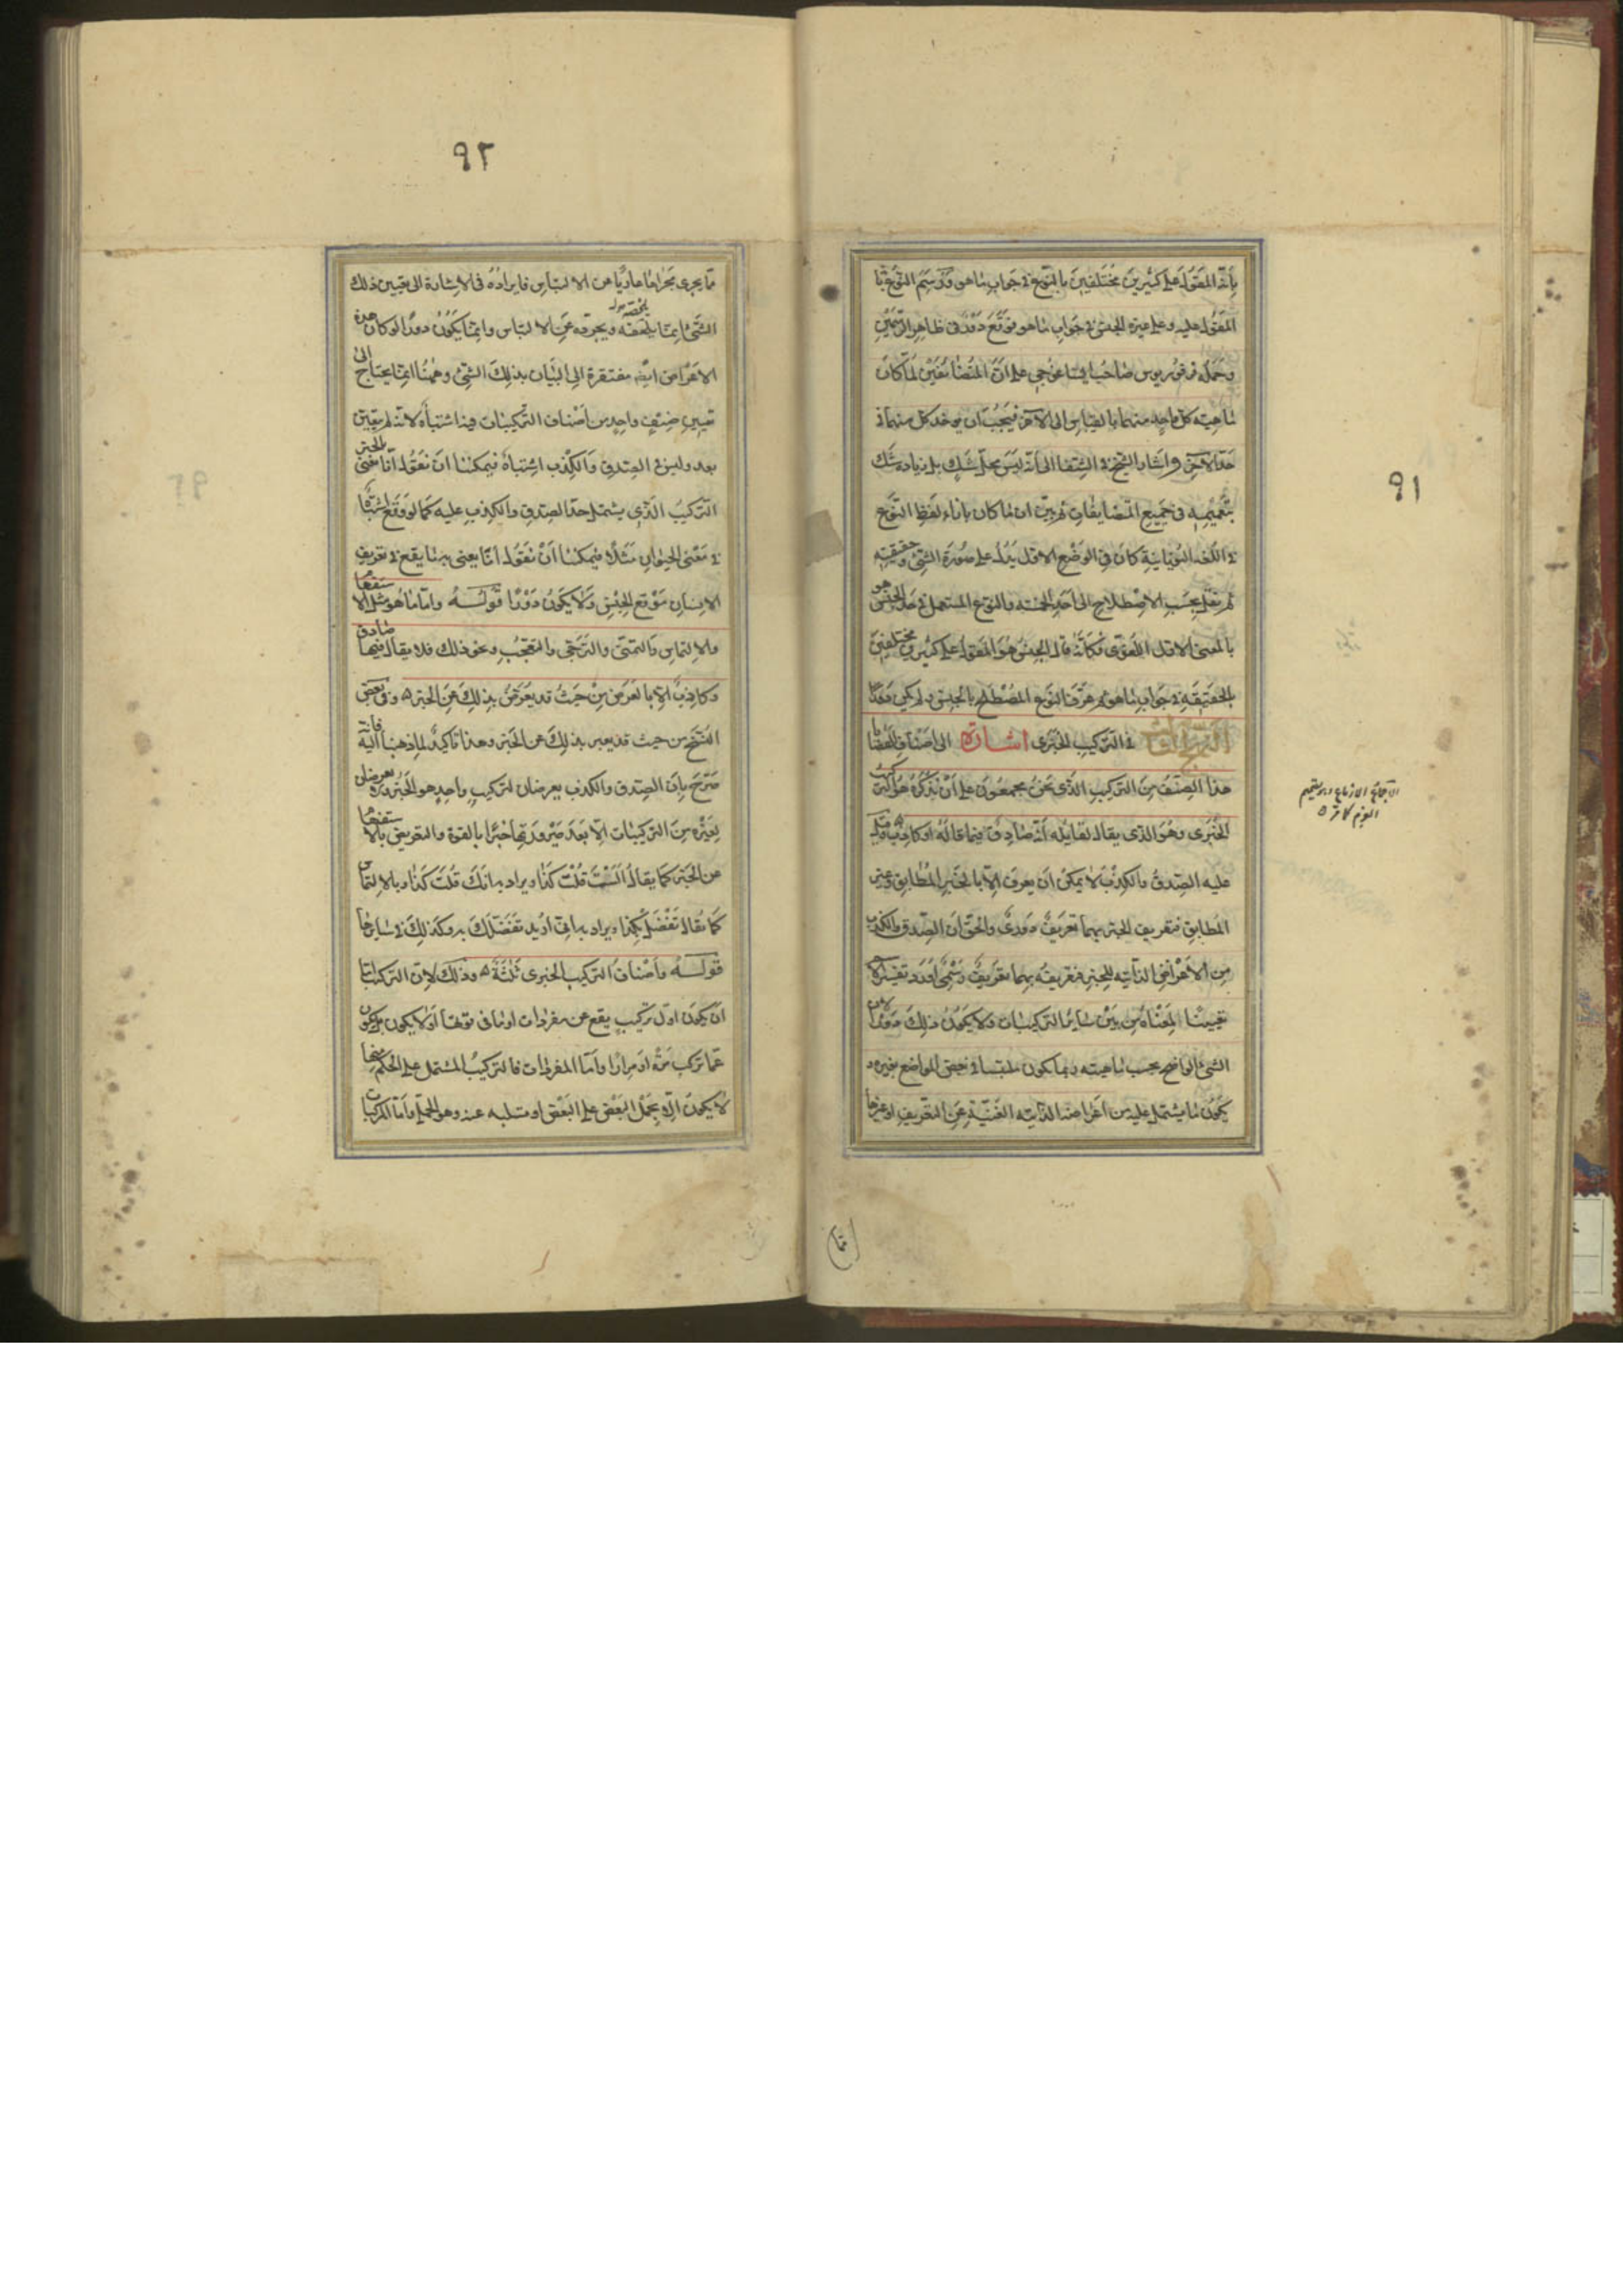 ٩١
بأنه المقول على كثيرين مختلفين بالنوع في جواب ما هو ورسم النوع بأنه
المقول عليه وعلى غيره الجنس في جواب ما هو فوقع دور في ظاهر الرسمين
وحمله فرفوريوس صاحب ايساغوجي على أن المتضائفين لما كان
ماهية كل واحد منهما بالقياس إلى الآخر فيجب أن يوخذ كل منهما في
حد الآخر وأشار الشيخ في الشفا إلى أنه ليس بحل شك بل زيادة شك
بتعميمه في جميع المتضايفات ثم بين ان ما كان بازاء لفظ النوع
في اللغه اليونانية كان في الوضع الاول يدل على صورة الشيء وحقيقته
ثم نقل بحسب الاصطلاح إلى أحد الخمسه والنوع المستعمل في حد الجنس هو
بالمعنى الاول اللغوى فكأنه قال الجنس هو المقول على كثيرين مختلفين
بالحقيقه في جواب ما هو ثم عرف النوع المصطلح بالجنس ولم يكن دورا
النهج الثالث في التركيب الخبرى اشارة الى اصناف القضايا
هذا الصنف من التركيب الذي نحن مجمعون على أن نذكره هو التركيب
الخبرى وهو الذى يقال لقايله أنه صادق فيما قاله او كاذب ه قيل
عليه الصدق والكذب لا يمكن أن يعرف الا بالخبر المطابق وغير
المطابق فتعريف الخبر بهما تعريف دورى والحق أن الصدق والكذب
من الأعراض الذاتيه للخبر فتعريفه بهما تعريف رسمي أورد تفسيرا
تعيينا لمعناه من بين ساير التركيبات ولا يكون ذلك دورا لان
الشئ الواضح بحسب ماهيته ربما يكون ملتبسا في بعض المواضع بغيره و
يكون ما يشتمل عليه من أعراضه الذاتيه الغنية عن التعريف او غيرها
الاجماع الازماع و تصميم
العزم
٩٢
مما يجرى مجراها عاريا من الالتباس فايراده في الاشارة الى تعيين ذلك
الشئ انما يلخصه ويجرده عن الالتباس وانما يكون دورا لو كان هذه
الاعراض ايضا مفتقرة إلى البيان بذلك الشئ وههنا انما يحتاج إلى
تعيين صنف واحد من أصناف التركيبات فيه اشتباه لانه لم يتعين
بعد وليس في الصدق والكذب اشتباه فيمكننا ان نقول أنا نعنى بالخبر
التركيب الذي يشتمل حد الصدق والكذب عليه كما لو وقع اشتباه
في معنى الحيوان مثلا فيمكننا أن نقول انا يعنى به ما يقع في تعريف
الانسان موقع الجنس ولا يكون دورا قوله واما ما هو مثل الاستفهام
والالتماس والتمني والترجي والتعجب ونحو ذلك فلا يقال فيها صادق
وكاذب الا بالعرض من حيث قد يعرض بذلك عن الخبر ه وفي بعض
النسخ من حيث قد يعبر بذلك عن الخبر وهذا تاكيد لما ذهبنا اليه فانه
صرح بان الصدق والكذب يعرضان لتركيب واحد هو الخبر ولا يعرضان
لغيره من التركيبات الا بعد صيرورتها خبرا بالقوة والتعريض بالاستفهام
عن الخبر كما يقال ألست قلت كذا ويراد به انك قلت كذا وبالالتماس
كما يقال تفضل بكذا ويراد به اني أريد تفضلك به وكذلك في سايرها
قوله وأصناف التركيب الخبرى ثلثة ه وذلك لان التركيب اما
ان يكون اول تركيب يقع عن مفردات او ما في قوتها أو لا يكون بل يكون
عما تركب مرة او مرارا واما المفردات فالتركيب المشتمل على الحكم منها
لا يكون الا بحمل البعض على البعض او سلبه عنه وهو الحملي واما المركبات